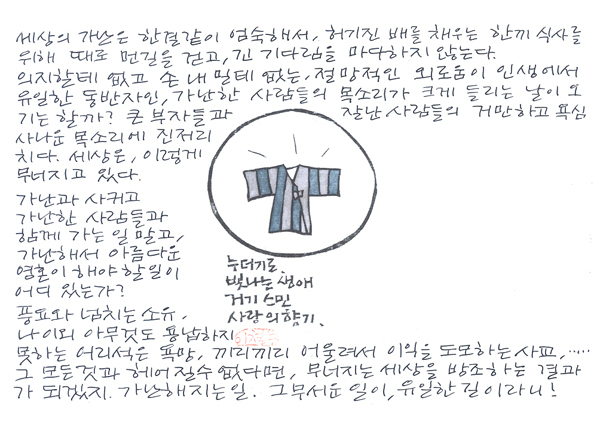 세상의 가난은 한결같이 엄숙해서, 허기진 배를 채우는 한끼 식사를
위해 때로 먼길을 걷고, 긴 기다림을 마다하지 않는다.
의지할데 없고 손 내밀데 없는, 절망적인 외로움이 인생에서
유일한 동반자인, 가난한 사람들의 목소리가 크게 들리는 날이 오
기는 할까? 큰 부자들과 잘난 사람들의 거만하고 욕심
사나운 목소리에 진저리
치다. 세상은, 이렇게
무너지고 있다.
가난과 사귀고
가난한 사람들과
함께 가는 일 말고,
가난해서 아름다운
영혼이 해야 할 일이
어디 있는가?
풍요와 넘치는 소유,
나 이외 아무것도 용납하지
못하는 어리석은 욕망, 끼리끼리 어울려서 이익을 도모하는 사교, .....
그 모든것과 헤어질수 없다면, 무너지는 세상을 방조하는 결과
가 되겠지. 가난해지는 일. 그 무서운 일이, 유일한 길이라니!
누더기로.
빛나는 생애
거기 스민
사랑의 향기.